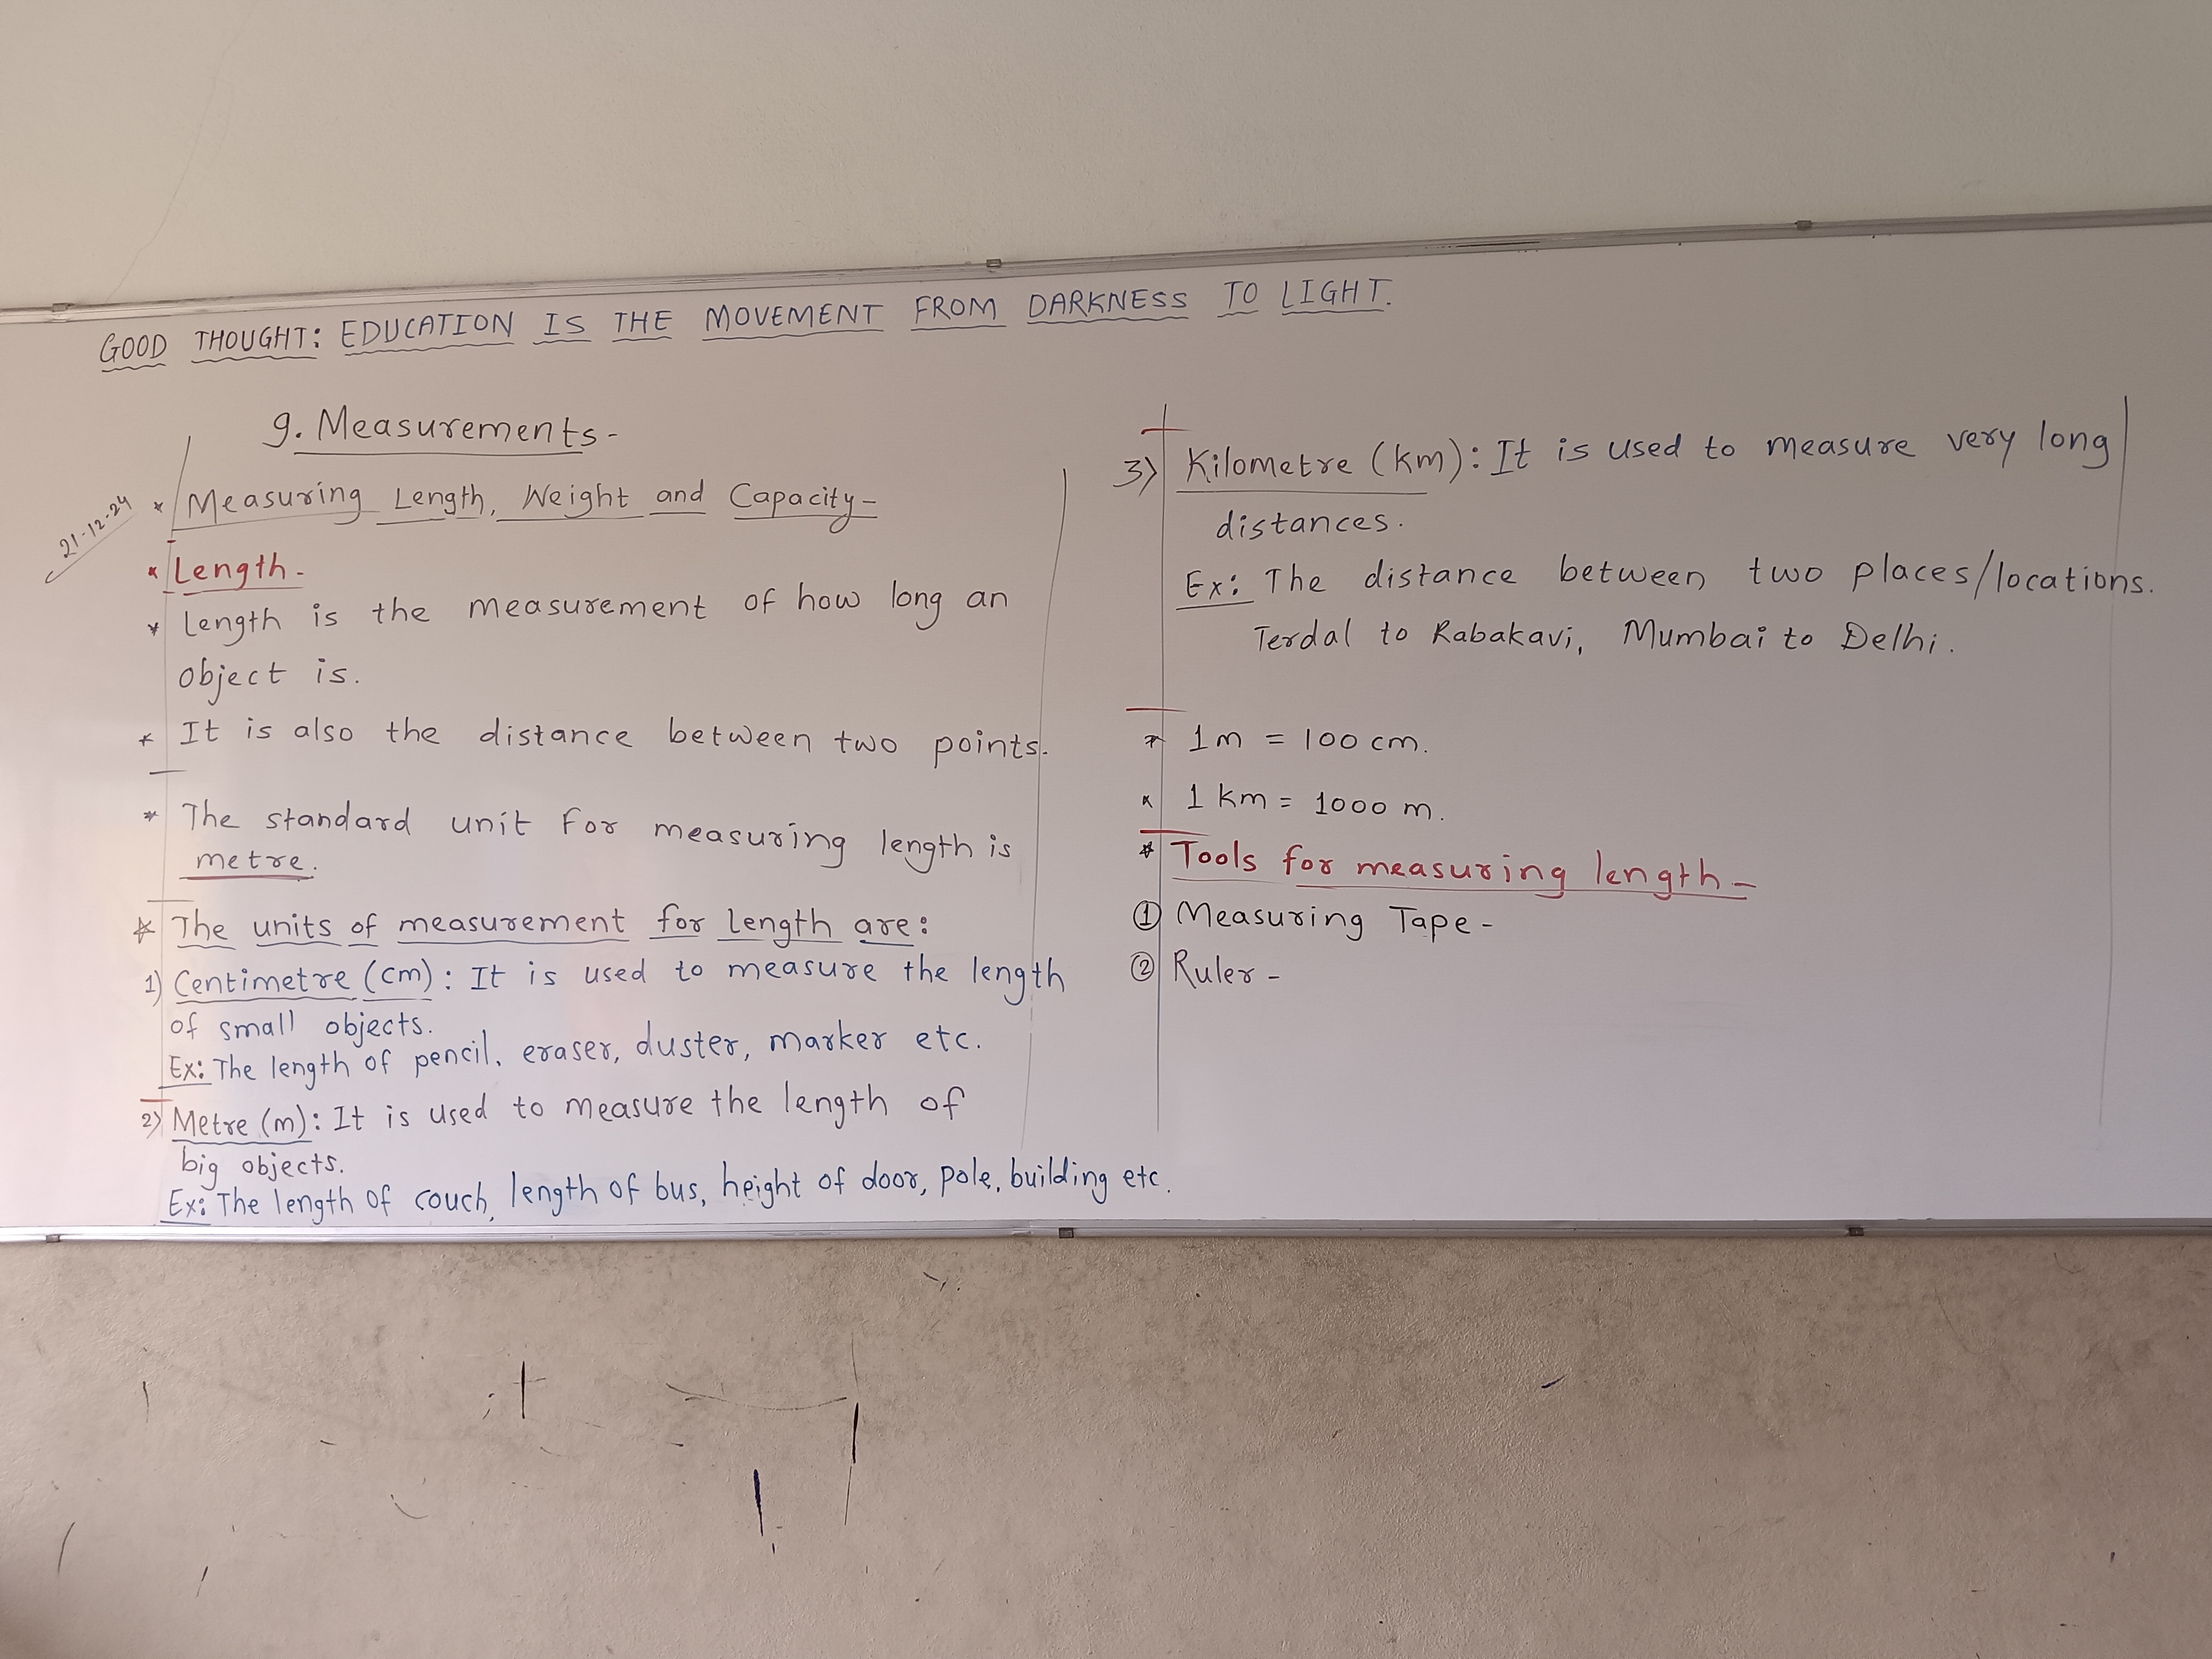 GOOD THOUGHT: EDUCATION IS THE MOVEMENT FROM DARKNESS TO LIGHT.
9. Measurements-
21-12-24
* Measuring Length, Weight and Capacity-
* Length-
* Length is the measurement of how long an
object is.
* It is also the distance between two points.
* The standard unit for measuring length is
metre.
* The units of measurement for length are:
1) Centimetre (cm): It is used to measure the length
of small objects.
Ex: The length of pencil, eraser, duster, marker etc.
2) Metre (m): It is used to measure the length of
big objects.
Ex: The length of couch, length of bus, height of door, pole, building etc.
3) Kilometre (km): It is used to measure very long
distances.
Ex: The distance between two places/locations.
Terdal to Rabakavi, Mumbai to Delhi.
* 1m = 100 cm.
* 1 km = 1000 m.
* Tools for measuring length-
① Measuring Tape-
② Ruler-